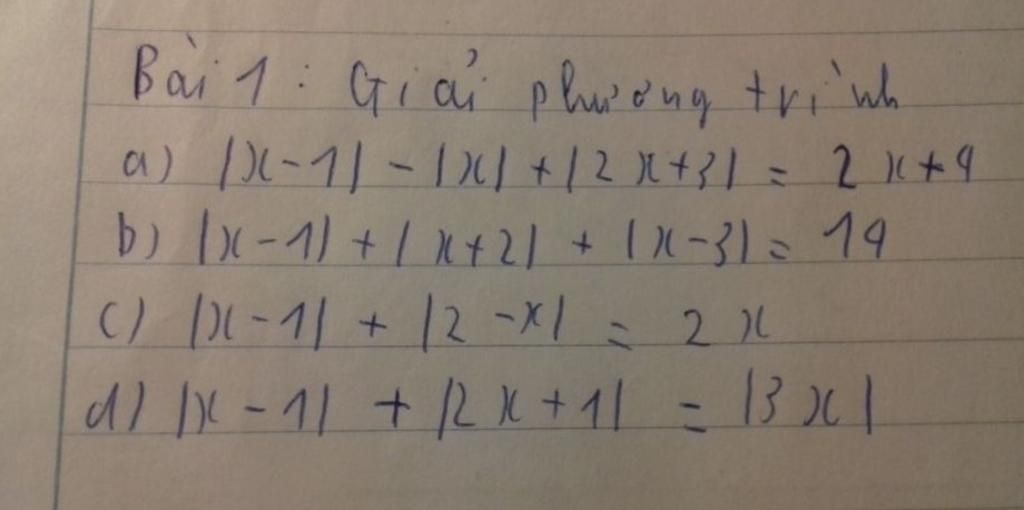 Bài 1 : Giải phương trình
a) |x-1| - |x| + |2x+3| = 2x+4
b) |x-1| + |x+2| + |x-3| = 14
c) |x-1| + |2-x| = 2x
d) |x-1| + |2x+1| = |3x|